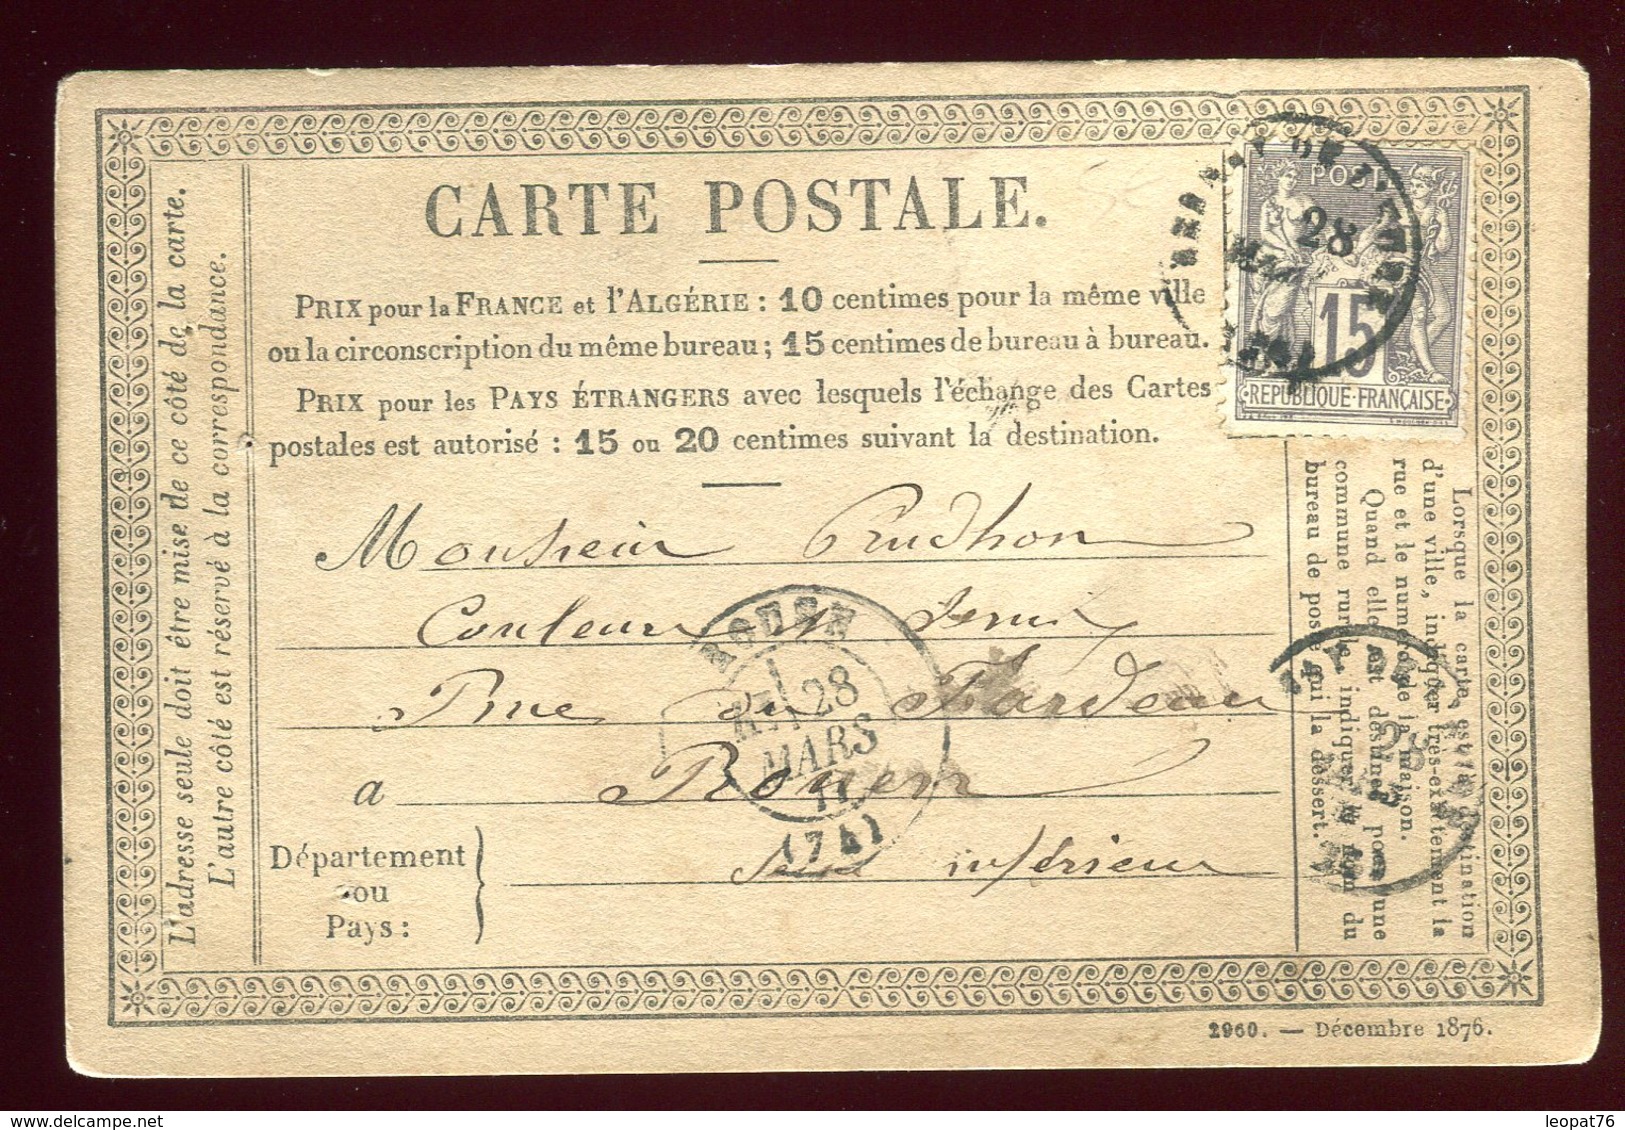 CARTE POSTALE.
PRIX pour la FRANCE et l'ALGÉRIE : 10 centimes pour la même ville
ou la circonscription du même bureau ; 15 centimes de bureau à bureau.
PRIX pour les PAYS ÉTRANGERS avec lesquels l'échange des Cartes
postales est autorisé : 15 ou 20 centimes suivant la destination.
Monsieur Prudhon
Couleurs
Rue du Fardeau
a Rouen
Seine inférieure
Département
ou
Pays :
L'adresse seule doit être mise de ce côté de la carte.
L'autre côté est réservé à la correspondance.
Lorsque la carte est à destination
d'une ville, indiquer très-exactement la
rue et le numéro de la maison.
Quand elle est destinée pour une
commune rurale, indiquer le nom du
bureau de poste qui la dessert.
POST
28
15
REPUBLIQUE·FRANÇAISE
ROUEN
28
MARS
(74)
28
2960. — Décembre 1876.
leopat76